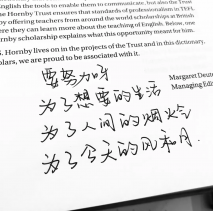 English the tools to enable them to communicate, but also the Trust
the Hornby Trust ensures that standards of professionalism in TEFL
by offering teachers from around the world scholarships at British
where they can learn more about the teaching of English. Below, one
Hornby scholarship explains what this opportunity meant for him.
Hornby lives on in the projects of the Trust and in this dictionary.
we are proud to be associated with it.
Margaret Deu
Managing Edi
要努力呀
为了想要的生活
为了人间的烟火
为了今天的风和月.